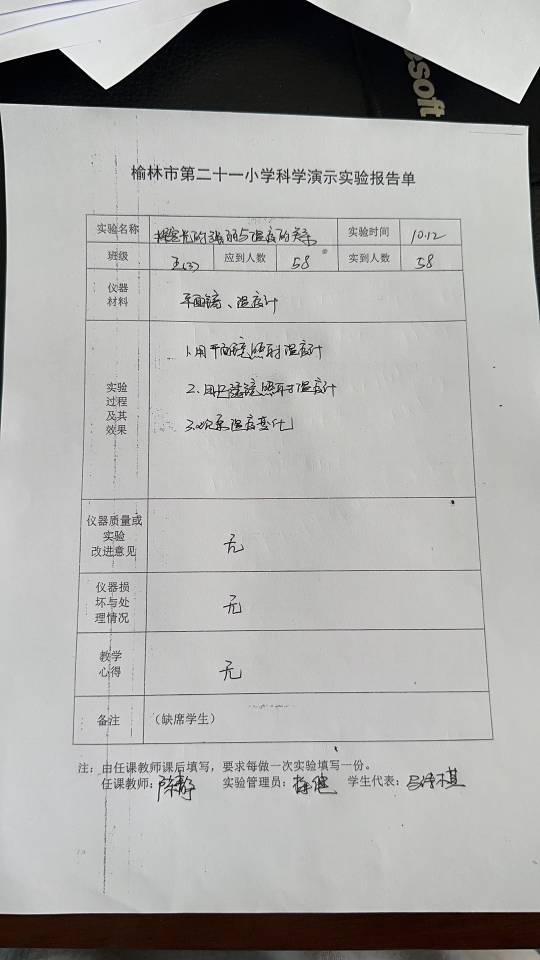 soft
榆林市第二十一小学科学演示实验报告单
实验名称 探究光的强弱与温度的关系 实验时间 10.12
班级 五(3) 应到人数 58 实到人数 58
仪器
材料
平面镜、温度计
实验
过程
及其
效果
1.用平面镜照射温度计
2.用凸透镜照射温度计
3.观察温度变化
仪器质量或
实验
改进意见
无
仪器损
坏与处
理情况
无
教学
心得
无
备注 (缺席学生)
注:由任课教师课后填写,要求每做一次实验填写一份。
任课教师:陈静 实验管理员: 学生代表: